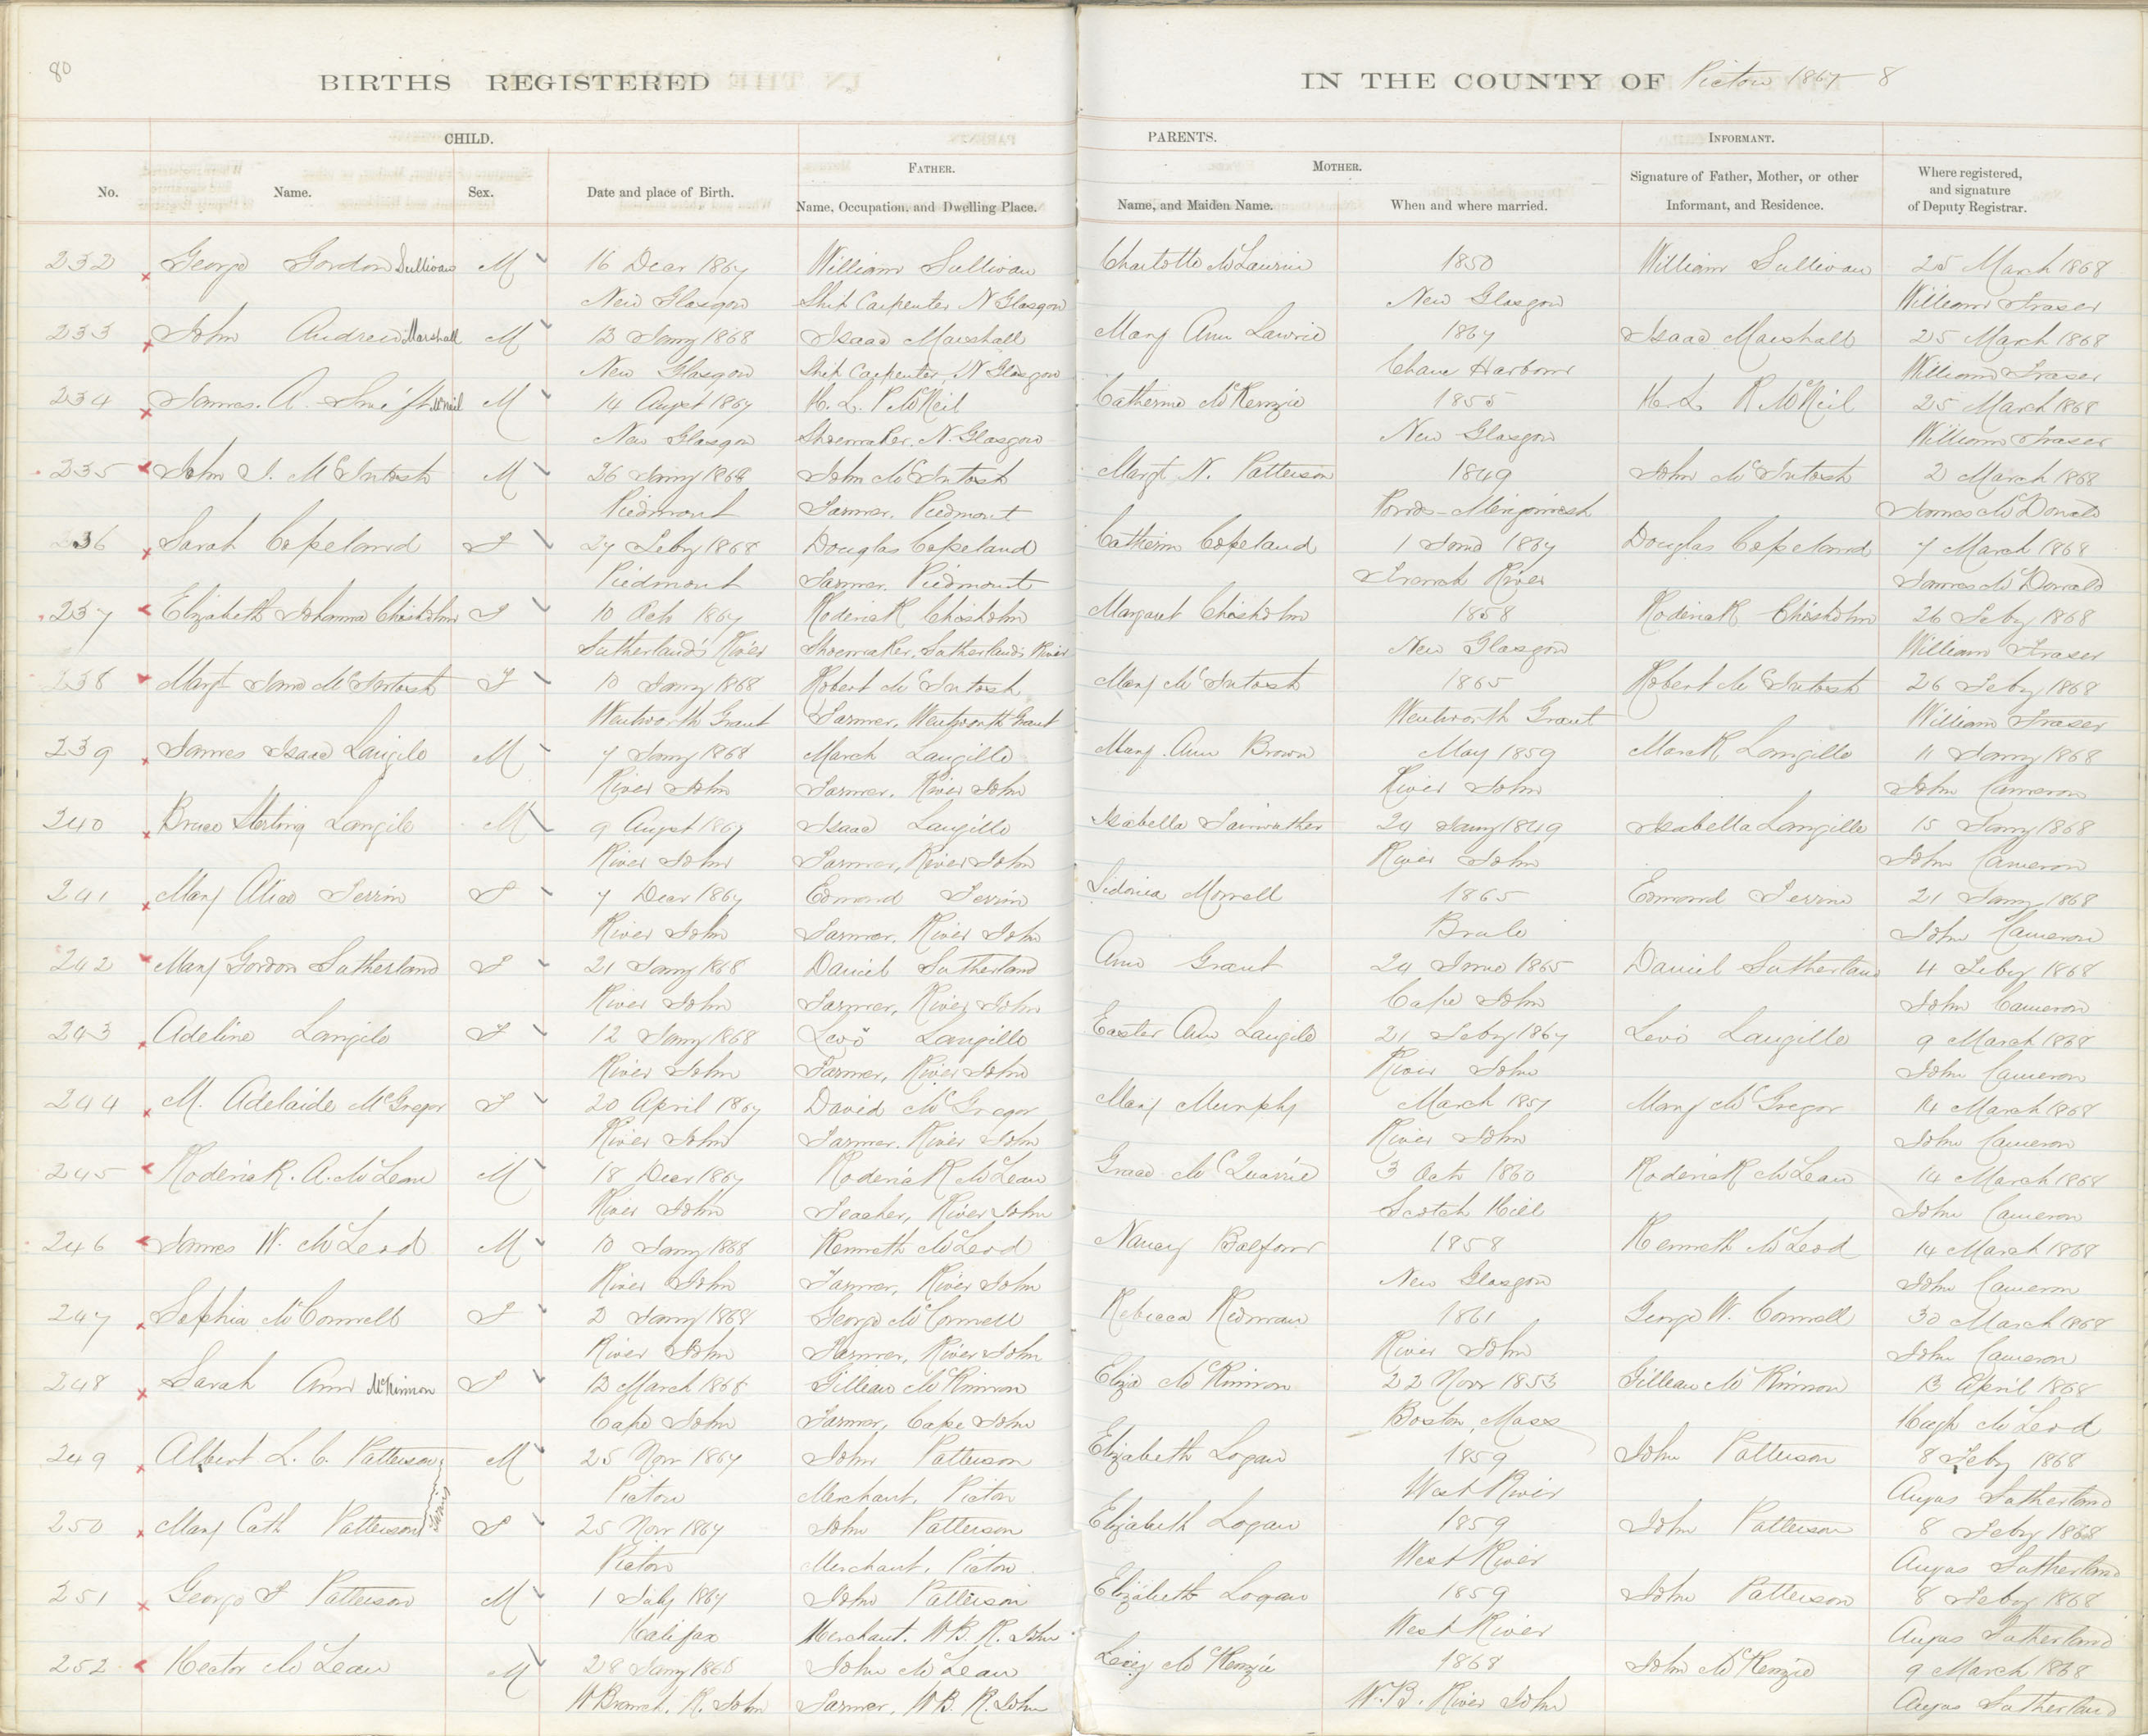 80
BIRTHS REGISTERED IN THE COUNTY OF Pictou 1867-8
CHILD. PARENTS. INFORMANT.
FATHER. MOTHER.
No. Name. Sex. Date and place of Birth. Name, Occupation, and Dwelling Place. Name, and Maiden Name. When and where married. Signature of Father, Mother, or other Informant, and Residence. Where registered, and signature of Deputy Registrar.
232 George Gordon Sullivan M 16 Decr 1867 William Sullivan Charlotte McLaurin 1850 William Sullivan 25 March 1868
New Glasgow Ship Carpenter N Glasgow New Glasgow William Fraser
233 John Andrew Marshall M 13 Jany 1868 Isaac Marshall Mary Ann Lawrie 1867 Isaac Marshall 25 March 1868
New Glasgow Ship Carpenter, N Glasgow Harbour William Fraser
234 James. A. McNeil M 14 Augst 1867 H. L. P. McNeil Catherine McKenzie 1855 H. L. McNeil 25 March 1868
New Glasgow Shoemaker. N. Glasgow New Glasgow William Fraser
235 John J. McIntosh M 26 Jany 1868 John McIntosh Margt N. Patterson 1849 John McIntosh 2 March 1868
Piedmont Farmer. Piedmont Ponds- Merigomish James McDonald
236 Sarah Copeland F 27 Feby 1868 Douglas Copeland Catherin Copeland 1 1867 Douglas Copeland 7 March 1868
Piedmont Farmer. Piedmont French River James McDonald
237 Elizabeth Johanna Chisholm F 10 Oct 1867 Roderick Chisholm Margaret Chisholm 1858 Roderick Chisholm 26 Feby 1868
Sutherland's River Shoemaker, Sutherland's River New Glasgow William Fraser
238 Margt Jane McIntosh F 10 Jany 1868 Robert McIntosh Mary McIntosh 1865 Robert McIntosh 26 Feby 1868
Wentworth Grant Farmer, Wentworth Grant Wentworth Grant William Fraser
239 James Isaac Langile M 7 Jany 1868 March Langille Mary Ann Brown May 1859 Mark Langille 11 Jany 1868
River John Farmer, River John River John John Cameron
240 Bruce Sterling Langile M 9 Augst 1867 Isaac Langille Isabella Fairwather 24 Jany 1849 Isabella Langille 15 Jany 1868
River John Farmer, River John River John John Cameron
241 Mary Alice Perrin F 7 Decr 1867 Edmond Perrin Sidonia Morrell 1865 Edmond Perrin 21 Jany 1868
River John Farmer. River John Brule John Cameron
242 Mary Gordon Sutherland F 21 Jany 1868 Daniel Sutherland Ann Grant 24 1865 Daniel Sutherland 4 Feby 1868
River John Farmer, River John Cape John John Cameron
243 Adeline Langile F 12 Jany 1868 Levi Langille Easter Ann Langile 21 Feby 1867 Levi Langille 9 March 1868
River John Farmer, River John River John John Cameron
244 M. Adelaide McGregor F 20 April 1867 David McGregor Mary Murphy March 1857 Mary McGregor 14 March 1868
River John Farmer. River John River John John Cameron
245 Roderick. A. McLean M 18 Decr 1867 Roderick McLean Grace McQuarrie 3 Oct 1860 Roderick McLean 14 March 1868
River John Teacher, River John Scotch Hill John Cameron
246 James W. McLeod M 10 Jany 1868 Kenneth McLeod Nancy Balfour 1858 Kenneth McLeod 14 March 1868
River John Farmer, River John New Glasgow John Cameron
247 Sophia McConnell F 2 Jany 1868 George McConnell Rebecca Redman 1861 George W. Connell 30 March 1868
River John Farmer, River John River John John Cameron
248 Sarah Ann McKinnon F 13 March 1868 Gillean McKinnon Eliza McKinnon 22 Novr 1853 Gillean McKinnon 13 April 1868
Cape John Farmer, Cape John Boston, Mass Hugh McLeod
249 Albert L. C. Patterson M 25 Novr 1867 John Patterson Elizabeth Logan 1859 John Patterson 8 Feby 1868
twins
Pictou Merchant, Pictou West River Angus Sutherland
250 Mary Cath Patterson F 25 Novr 1867 John Patterson Elizabeth Logan 1859 John Patterson 8 Feby 1868
Pictou Merchant, Pictou West River Angus Sutherland
251 George F Patterson M 1 July 1867 John Patterson Elizabeth Logan 1859 John Patterson 8 Feby 1868
Halifax Merchant. W.B. R. John West River Angus Sutherland
252 Hector McLean M 28 Jany 1868 John McLean McKenzie 1868 John McKenzie 9 March 1868
W Branch. R. John Farmer, W.B. R. John W.B. River John Angus Sutherland